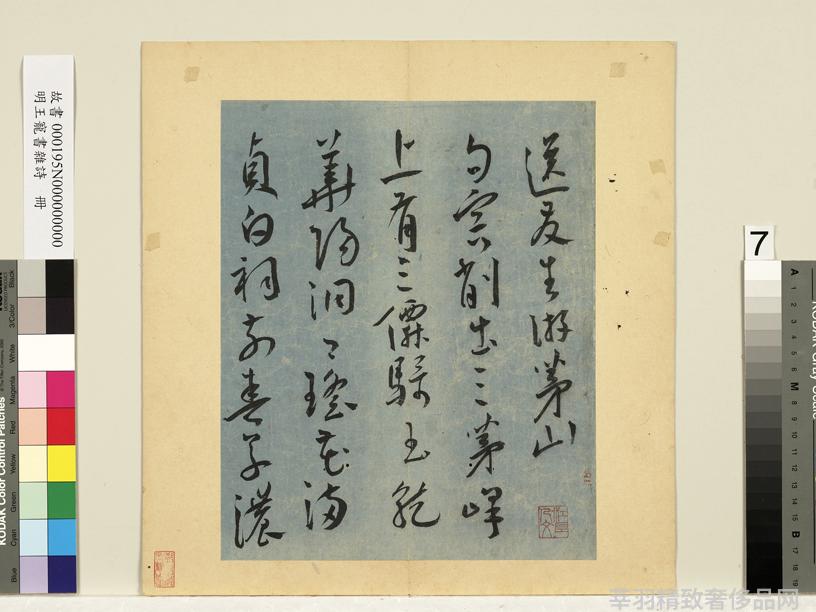 送友生游茅山
句容削出三茅峰
上有三僊騎玉龍
華陽洞口瑤花滿
貞白祠前春草濃
故書 000195N000000000
明王寵書雜詩 冊
KODAK Color Control Patches
Blue
Cyan
Green
Yellow
Red
Magenta
White
3/Color
Black
7
A 1 2 3 4 5 6 M 8 9 10 11 12 13 14 15 B 17 18 19
莘羽精致奢侈品网